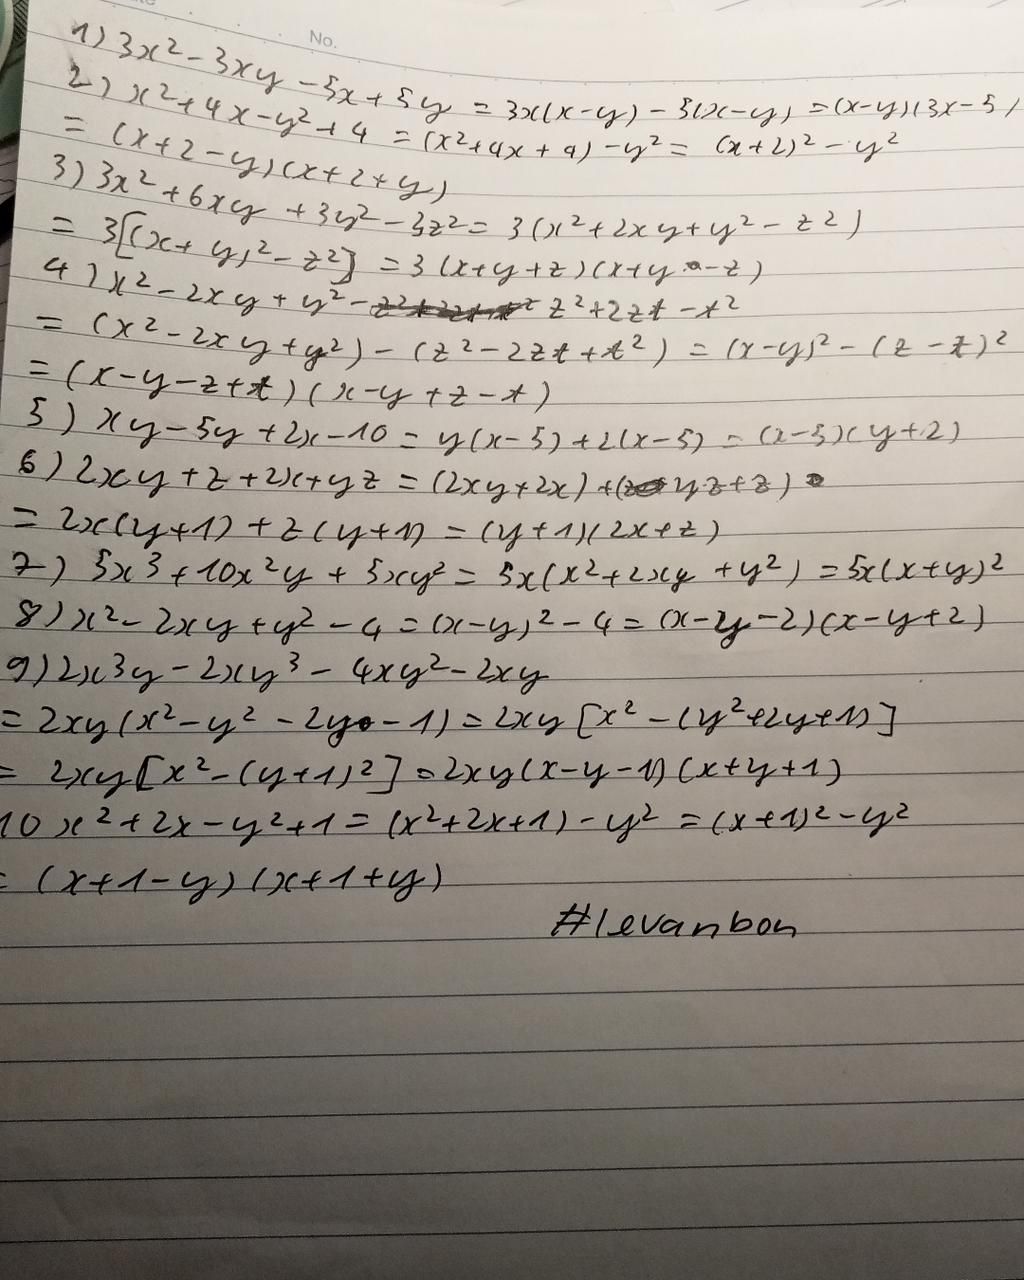 No.
1) 3x² - 3xy - 5x + 5y = 3x(x-y) - 5(x-y) = (x-y)(3x-5)
2) x² + 4x - y² + 4 = (x² + 4x + 4) - y² = (x+2)² - y²
= (x+2-y)(x+2+y)
3) 3x² + 6xy + 3y² - 3z² = 3(x² + 2xy + y² - z²)
= 3[(x+y)² - z²] = 3(x+y+z)(x+y-z)
4) x² - 2xy + y² - z² + 2zt - t²
= (x² - 2xy + y²) - (z² - 2zt + t²) = (x-y)² - (z-t)²
= (x-y-z+t)(x-y+z-t)
5) xy - 5y + 2x - 10 = y(x-5) + 2(x-5) = (x-5)(y+2)
6) 2xy + z + 2x + yz = (2xy + 2x) + (yz + z)
= 2x(y+1) + z(y+1) = (y+1)(2x+z)
7) 5x³ + 10x²y + 5xy² = 5x(x² + 2xy + y²) = 5x(x+y)²
8) x² - 2xy + y² - 4 = (x-y)² - 4 = (x-y-2)(x-y+2)
9) 2x³y - 2xy³ - 4xy² - 2xy
= 2xy(x² - y² - 2y - 1) = 2xy[x² - (y² + 2y + 1)]
= 2xy[x² - (y+1)²] = 2xy(x-y-1)(x+y+1)
10 x² + 2x - y² + 1 = (x² + 2x + 1) - y² = (x+1)² - y²
= (x+1-y)(x+1+y)
#levanbon